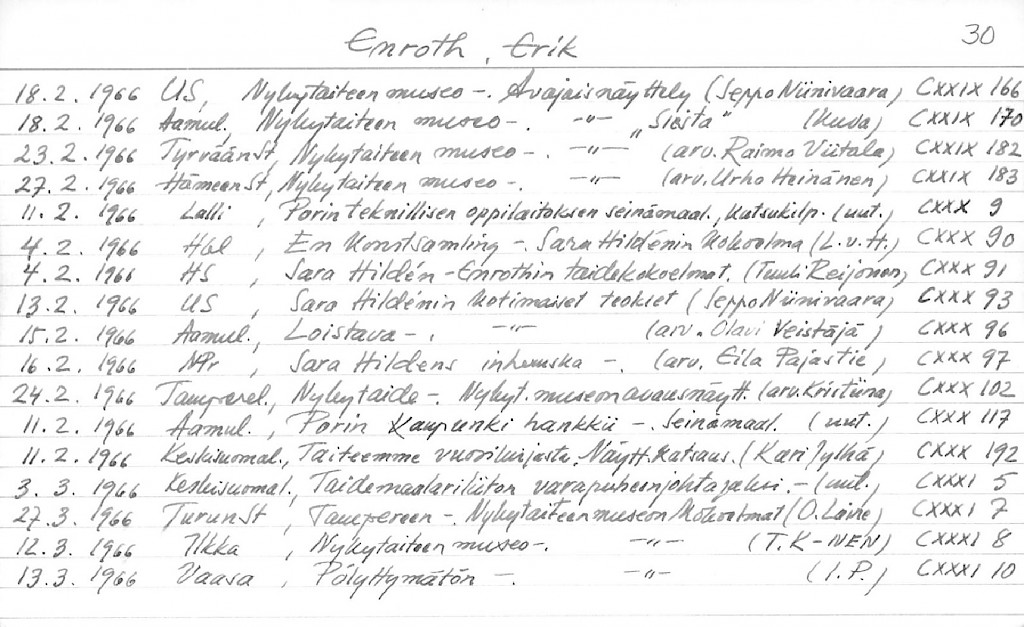 Enroth, Erik 30
18.2.1966 US, Nykytaiteen museo -. Avajaisnäyttely (Seppo Niinivaara) CXXIX 166
18.2.1966 Aamul., Nykytaiteen museo -. -"- "Siesta" (kuva) CXXIX 170
23.2.1966 TyrväänSt, Nykytaiteen museo -. -"- (arv. Raimo Viitala) CXXIX 182
27.2.1966 HämeenSt, Nykytaiteen museo -. -"- (arv. Urho Heinänen) CXXIX 183
11.2.1966 Lalli, Porin teknillisen oppilaitoksen seinämaal., kutsukilp. (uut.) CXXX 9
4.2.1966 Hbl, En Konstsamling -. Sara Hildénin kokoelma (L.v.H.) CXXX 90
4.2.1966 HS, Sara Hildén - Enrothin taidekokoelmat. (Tuuli Reijonen) CXXX 91
13.2.1966 US, Sara Hildénin kotimaiset teokset (Seppo Niinivaara) CXXX 93
15.2.1966 Aamul., Loistava -. -"- (arv. Olavi Veistäjä) CXXX 96
16.2.1966 NPr, Sara Hildens inhemska -. (arv. Eila Pajastie) CXXX 97
24.2.1966 Tamperel., Nykytaide -. Nykyt.museon avausnäytt. (arv. Kristiina) CXXX 102
11.2.1966 Aamul., Porin kaupunki hankkii -. seinämaal. (uut.) CXXX 117
11.2.1966 Keskisuomal., Taiteemme vuorikirjasta. Näytt.katsaus. (Kari Jylhä) CXXX 192
3.3.1966 Keskisuomal., Taidemaalariliiton varapuheenjohtajaksi. - (uut.) CXXXI 5
27.3.1966 TurunSt, Tampereen -. Nykytaiteen museon kokoelmat (O. Laine) CXXXI 7
12.3.1966 Ilkka, Nykytaiteen museo -. -"- (T.K-NEN) CXXXI 8
13.3.1966 Vaasa, Pölyttymätön -. -"- (I.P.) CXXXI 10